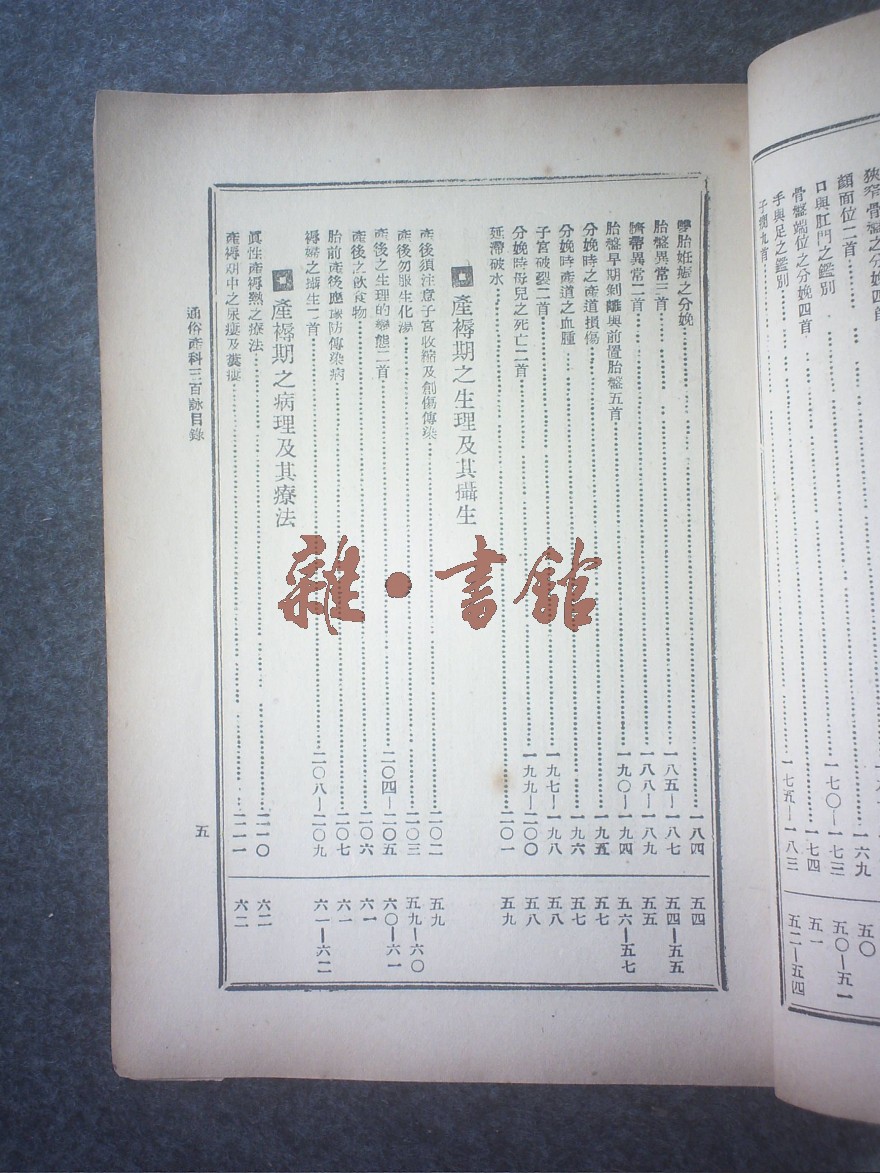 狹窄骨盤之分娩四首
顏面位二首 一七〇—一七三 五〇—五一
口與肛門之鑑別
骨盤端位之分娩四首
手與足之鑑別
子癇九首 一七五—一八三 五二—五四
雙胎妊娠之分娩 一八四 五四
胎盤異常三首 一八五—一八七 五四—五五
臍帶異常二首 一八八—一八九 五五
胎盤早期剝離與前置胎盤五首 一九〇—一九四 五六—五七
分娩時之產道損傷 一九五 五七
分娩時產道之血腫 一九六 五七
子宮破裂二首 一九七—一九八 五八
分娩時母兒之死亡二首 一九九—二〇〇 五八
延滯破水 二〇一 五九
產褥期之生理及其攝生
產後須注意子宮收縮及創傷傳染 二〇二 五九
產後勿服生化湯 二〇三 五九—六〇
產後之生理的變態二首 二〇四—二〇五 六〇—六一
產後之飲食物 二〇六 六一
胎前產後應預防傳染病 二〇七 六一
褥婦之攝生二首 二〇八—二〇九 六一—六二
產褥期之病理及其療法
眞性產褥熱之療法 二一〇 六二
產褥期中之尿瘻及糞瘻 二一一 六二
通俗產科三百詠目錄
五
雜·書館